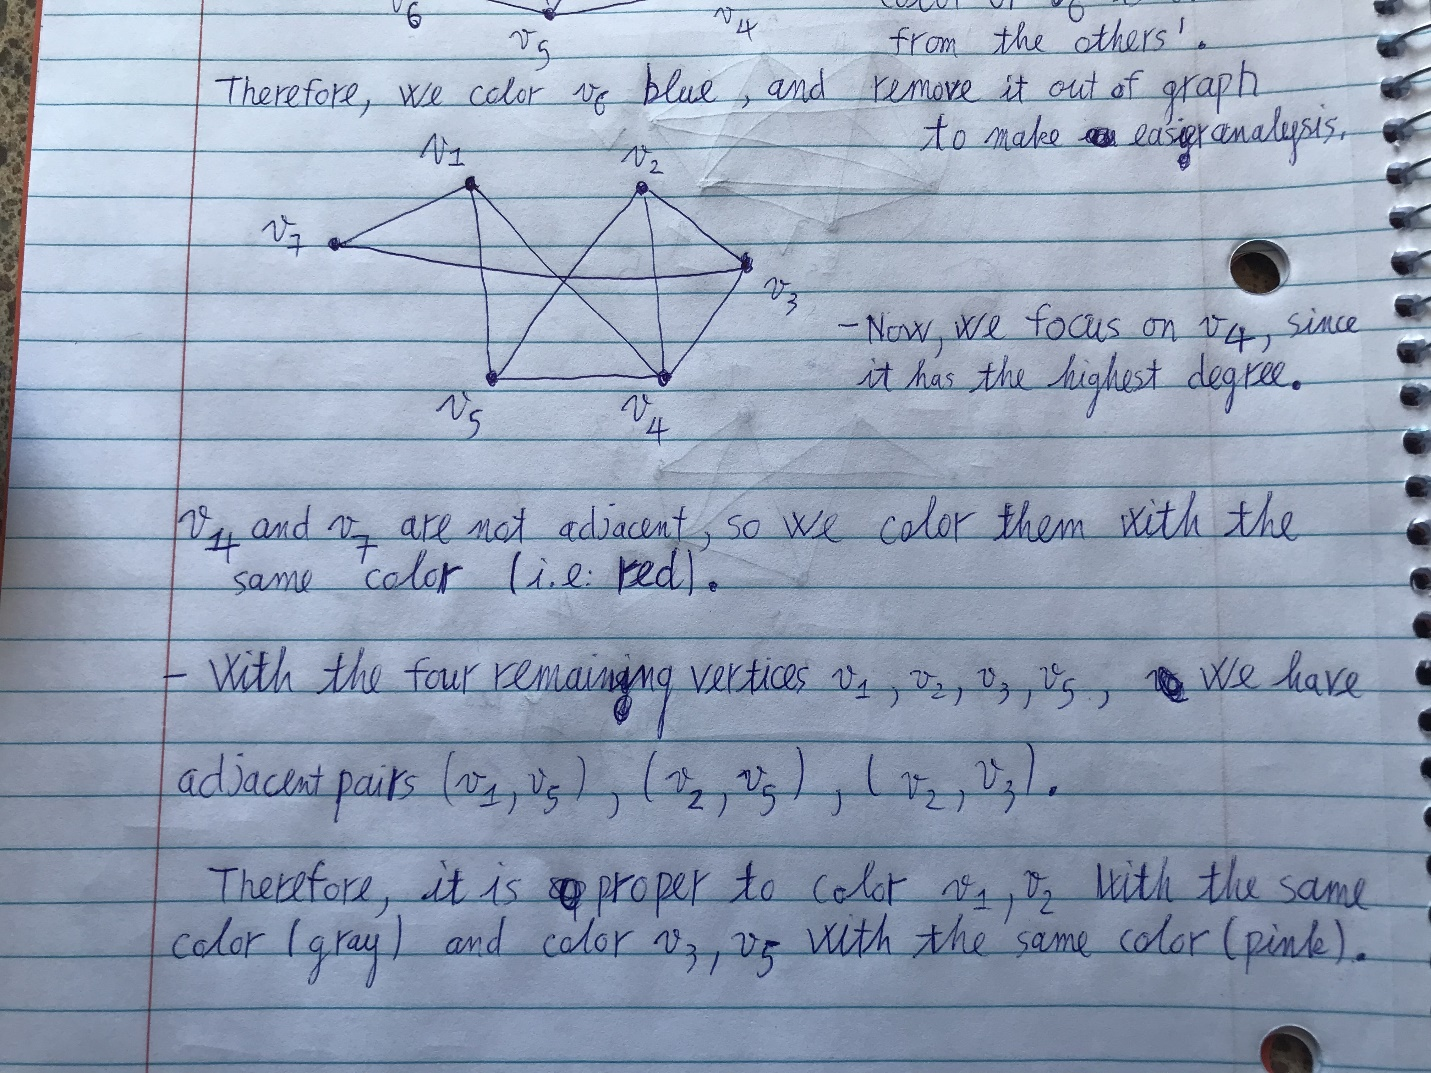 v6 v5 v4
from the others'.
Therefore, we color v6 blue, and remove it out of graph
to make easier analysis.
v1 v2
v7
v3
- Now, we focus on v4, since
it has the highest degree.
v5 v4
v4 and v7 are not adjacent, so we color them with the
same color (i.e: red).
- With the four remaining vertices v1, v2, v3, v5, we have
adjacent pairs (v1, v5), (v2, v5), (v2, v3).
Therefore, it is proper to color v1, v2 with the same
color (gray) and color v3, v5 with the same color (pink).